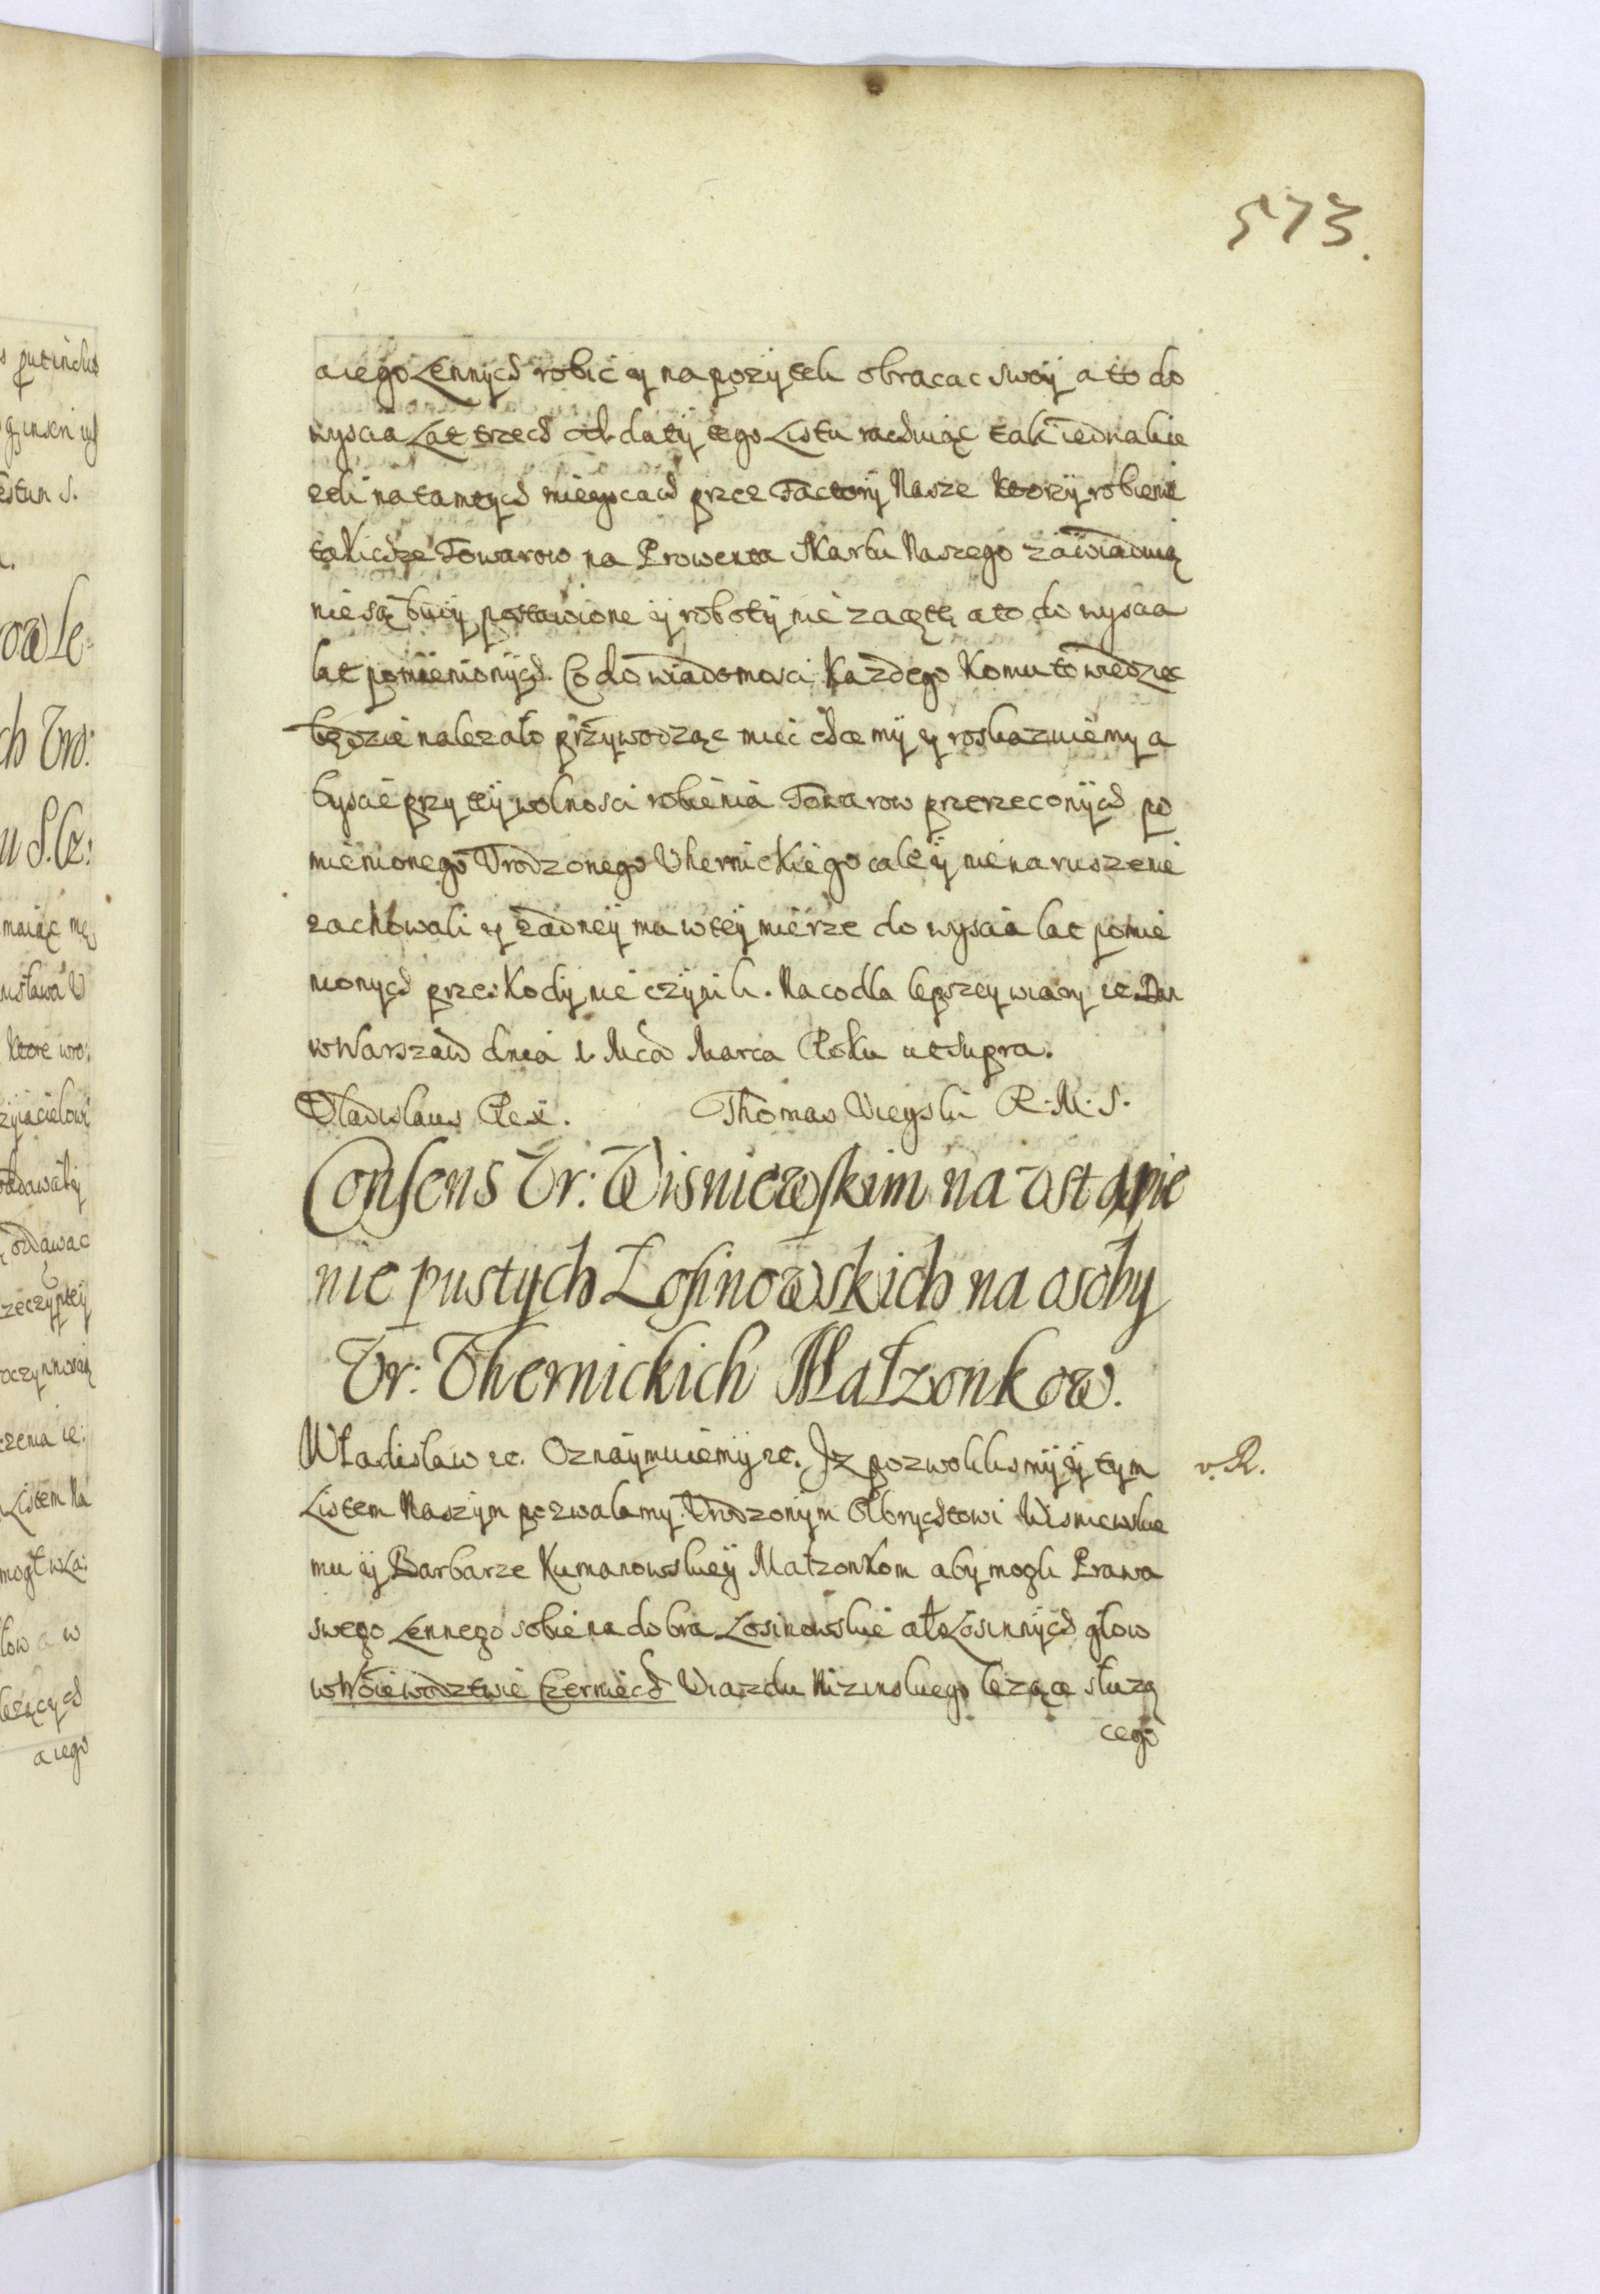 573.
a iego Lennych robić y na pozytek obracac swoy a to do
wyscia Lat trzech od daty tego Listu rachuiąc tak iednak ie
zeli na tamtych mieyscach przez Factory Nasze Ktorzy robienie
takichze Towarow na Prowenta Skarbu Naszego zawiaduią
nie są budy postawione y roboty nie zaczętę a to do wyscia
lat pomienionych. Co do wiadomosci Kazdego Komu to wiedziec
będzie nalezało przywodząc miec chcemy y roskazuiemy a
byscie przy tey wolnosci robienia Towarow przerzeczonych po
mienionego Urodzonego Uhernickiego cale y nienaruszenie
zachowali y zadney mu w tey mierze do wyscia lat pomie
nionych przeskody nie czynili. Na co dla lepszey wiary ec. Dan
w Warszawie dnia 1. Mca Marca Roku ut supra.
Vladislaus Rex. Thomas Uieyski R. M. S.
Consens Ur: Wisniewskim na Ustąpie
nie pustych Łosinowskich na osoby
Ur: Uhernickich Małzonkow.
Władisław ec. Oznaymuiemy ec. Iz pozwolilismy y tym
v. R.
Listem Naszym pozwalamy Urodzonym Olbrychtowi Wisniewskie
mu y Barbarze Kumanowskiey Małzonkom aby mogli Prawa
swego Lennego sobie na dobra Łosinowskie Łosinnych głow
w Woiewodztwie Czerniech Uiazdu Nizinskiego lezące słuzą
cego